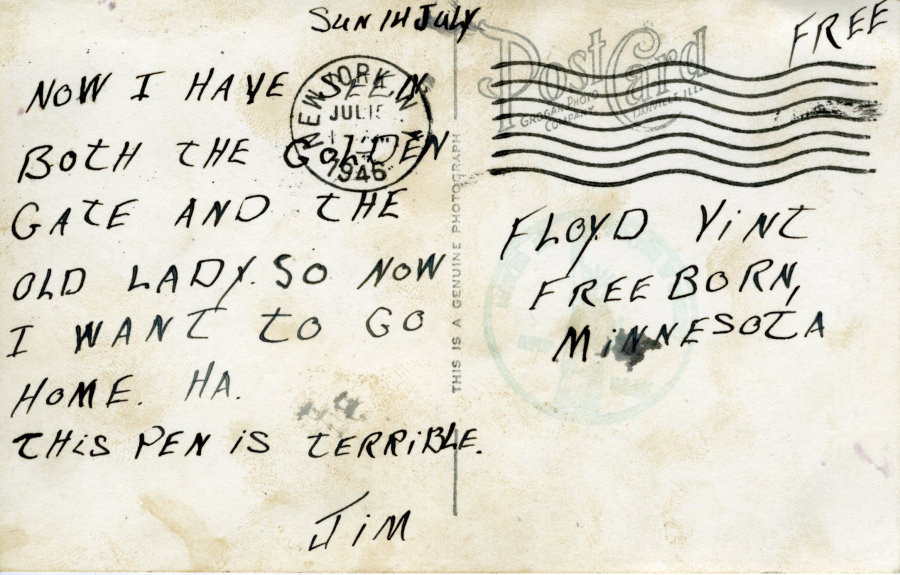 SUN 14 JULY
FREE
NOW I HAVE SEEN
BOTH THE GOLDEN
GATE AND THE
OLD LADY. SO NOW
I WANT TO GO
HOME. HA.
THiS PEN iS TERRiBLE.
JiM
NEW YORK
JUL 15
1946
Post Card
GROGAN PHOTO
COMPANY
DANVILLE, ILL.
THIS IS A GENUINE PHOTOGRAPH
FLOYD ViNT
FREEBORN,
MiNNESOTA